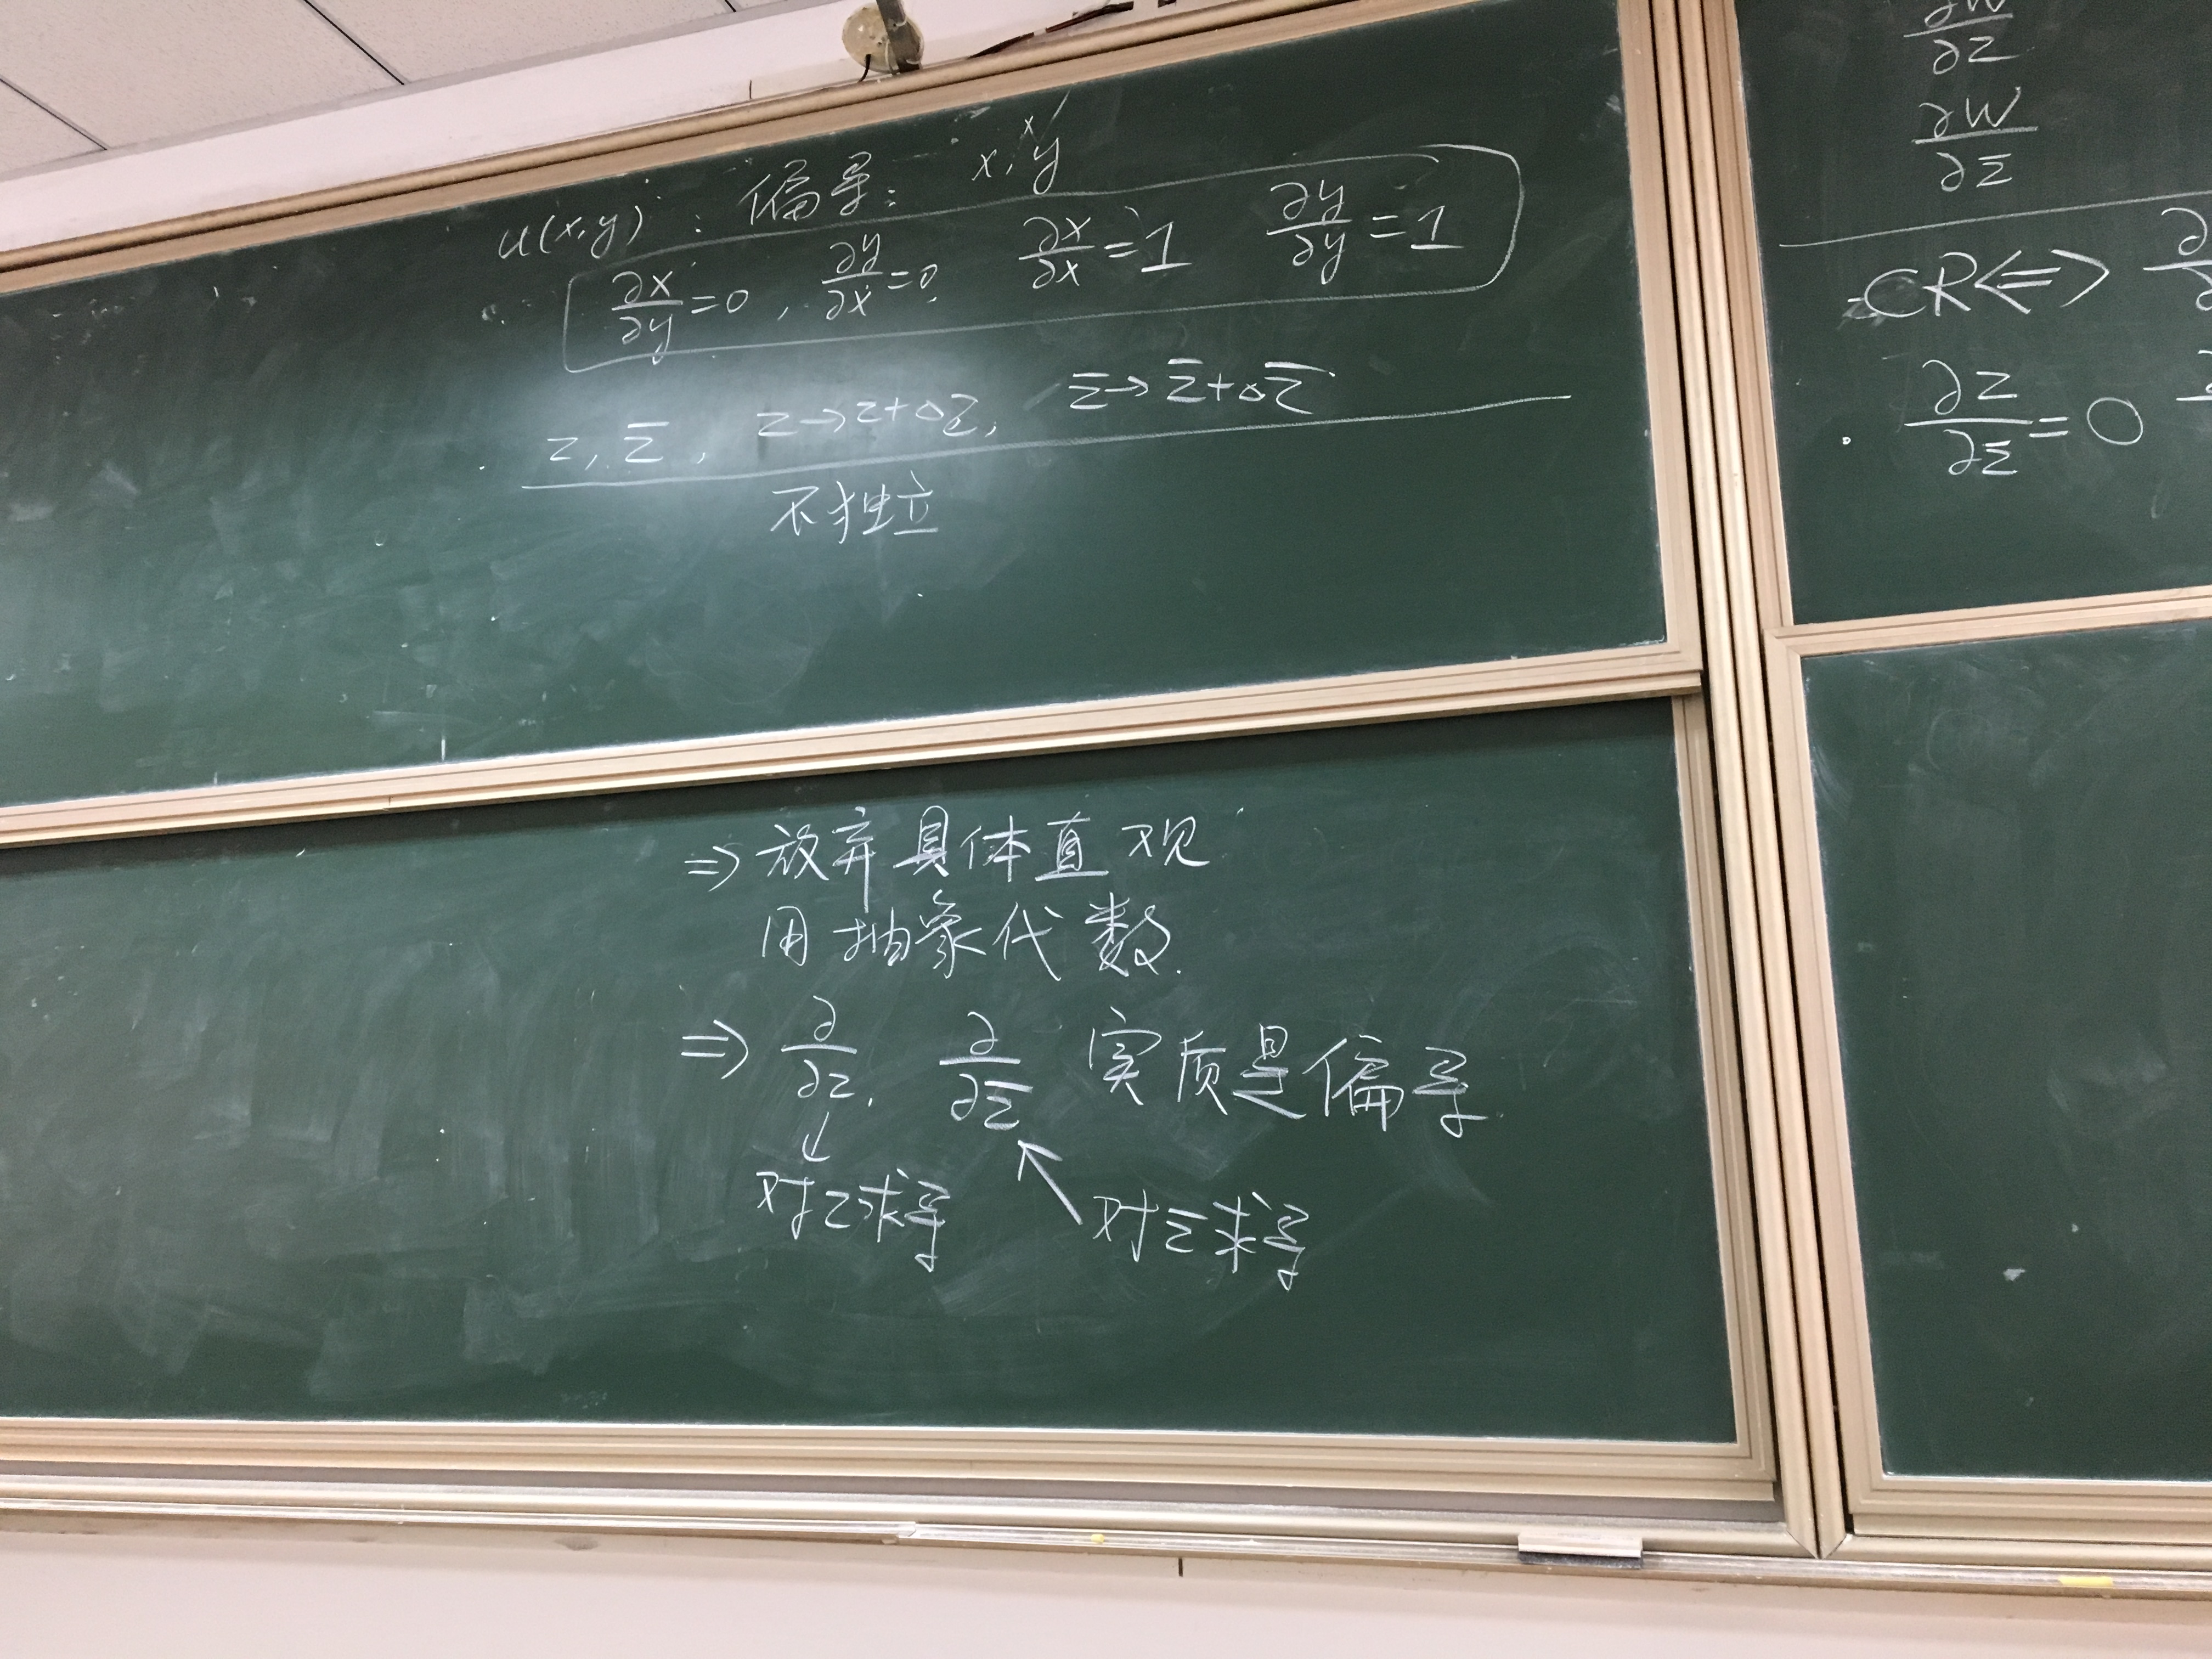 u(x,y) : 偏导: x, y
∂x/∂y=0 , ∂y/∂x=0, ∂x/∂x=1 ∂y/∂y=1
z, z̄, z→z+△z, z̄→z̄+△z̄
不独立
⇒放弃具体直观
用抽象代数.
⇒ ∂/∂z, ∂/∂z̄ 实质是偏导
对z求导 对z̄求导
∂W/∂z
∂W/∂z̄
CR⇔
∂z/∂z̄=0